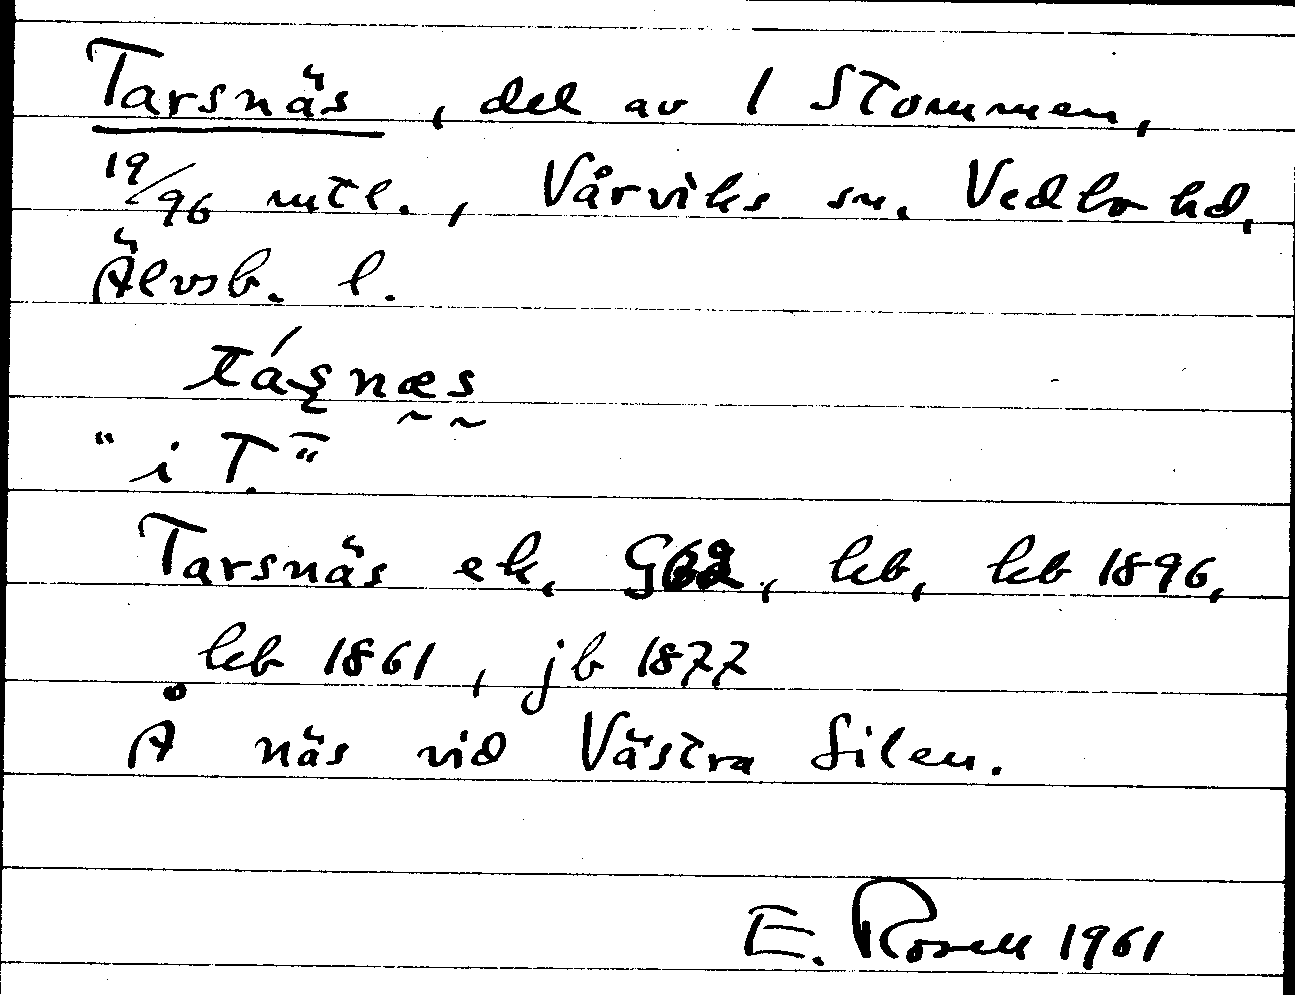 Tarsnäs, del av 1 Stommen,
19/96 mtl., Vårviks sn. Vedbo hd,
Älvsb. l.
tásnæs
"i T."
Tarsnäs ek, G62, kb, kb 1896,
kb 1861, jb 1877
Å näs vid Västra Silen.
E. Rosell 1961